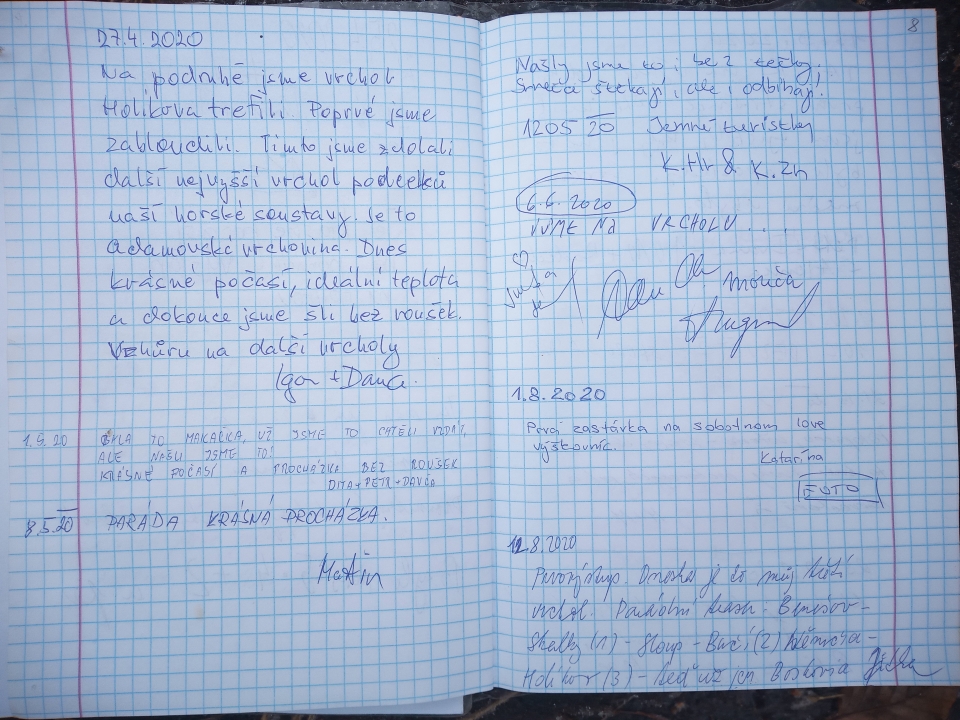 27.4.2020
Na podruhé jsme vrchol
Holíkova trefili. Poprvé jsme
zabloudili. Tímto jsme zdolali
další nejvyšší vrchol podcelků
naší horské soustavy. Je to
Adamovská vrchovina. Dnes
krásné počasí, ideální teplota
a dokonce jsme šli bez roušek.
Vzhůru na další vrcholy
Igor + Dana.
1.5.20 BYLA TO MAKAČKA, UŽ JSME TO CHTĚLI VZDÁT,
ALE NAŠLI JSME TO!
KRÁSNÉ POČASÍ A PROCHÁZKA BEZ ROUŠEK
DITA+PETR+DAVČA
8.5.20 PARÁDA KRÁSNÁ PROCHÁZKA.
Martin
8
Našly jsme to i bez tečky.
Smeča štěkají, ale i odbíhají!
1205 20 Jemné turistky
K.Hr & K.Zh
6.6.2020
JSME NA VRCHOLU...
Monča
1.8.2020
První zastávka na sobotnom love
výškovníc.
Katarína
FOTO
12.8.2020
Prvovýstup. Dneska je to můj třetí
vrchol. Parádní trasa. Benešov-
Skalky (1) - Sloup - Bučí (2) Němčice-
Holíkov (3) - teď už jen Boskovice Jitka